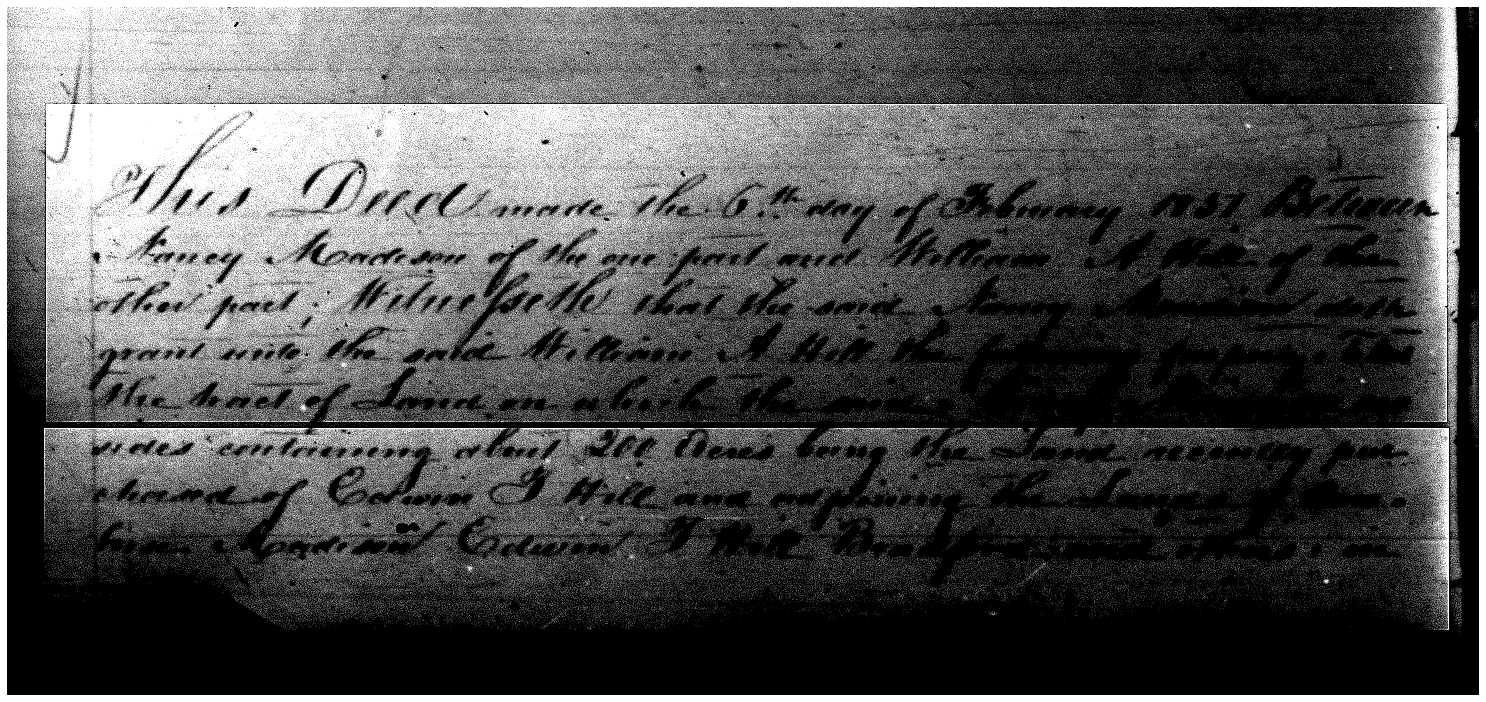 This Deed made the 6th day of February 1857 Between
Nancy Madison of the one part and William A Hill of the
other part; Witnesseth that the said Nancy Madison doth
grant unto the said William A Hill the following property: To wit
the tract of Land on which the said
sides containing about 200 Acres being the Land recently pur
chased of Edwin F Hill and adjoining the Lands of
Madison Edwin F Hill and others: in